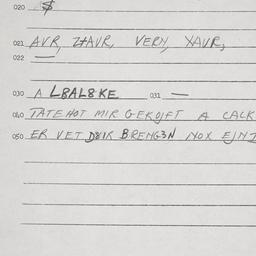 020 $
021 AVR, ZHAVR, VERY, XAVR,
022 —
030 A L8AL8KE 031 —
040 TATE HOT MIR GEKOJFT A CALK
050 ER VET BRENG3N NOX EJN